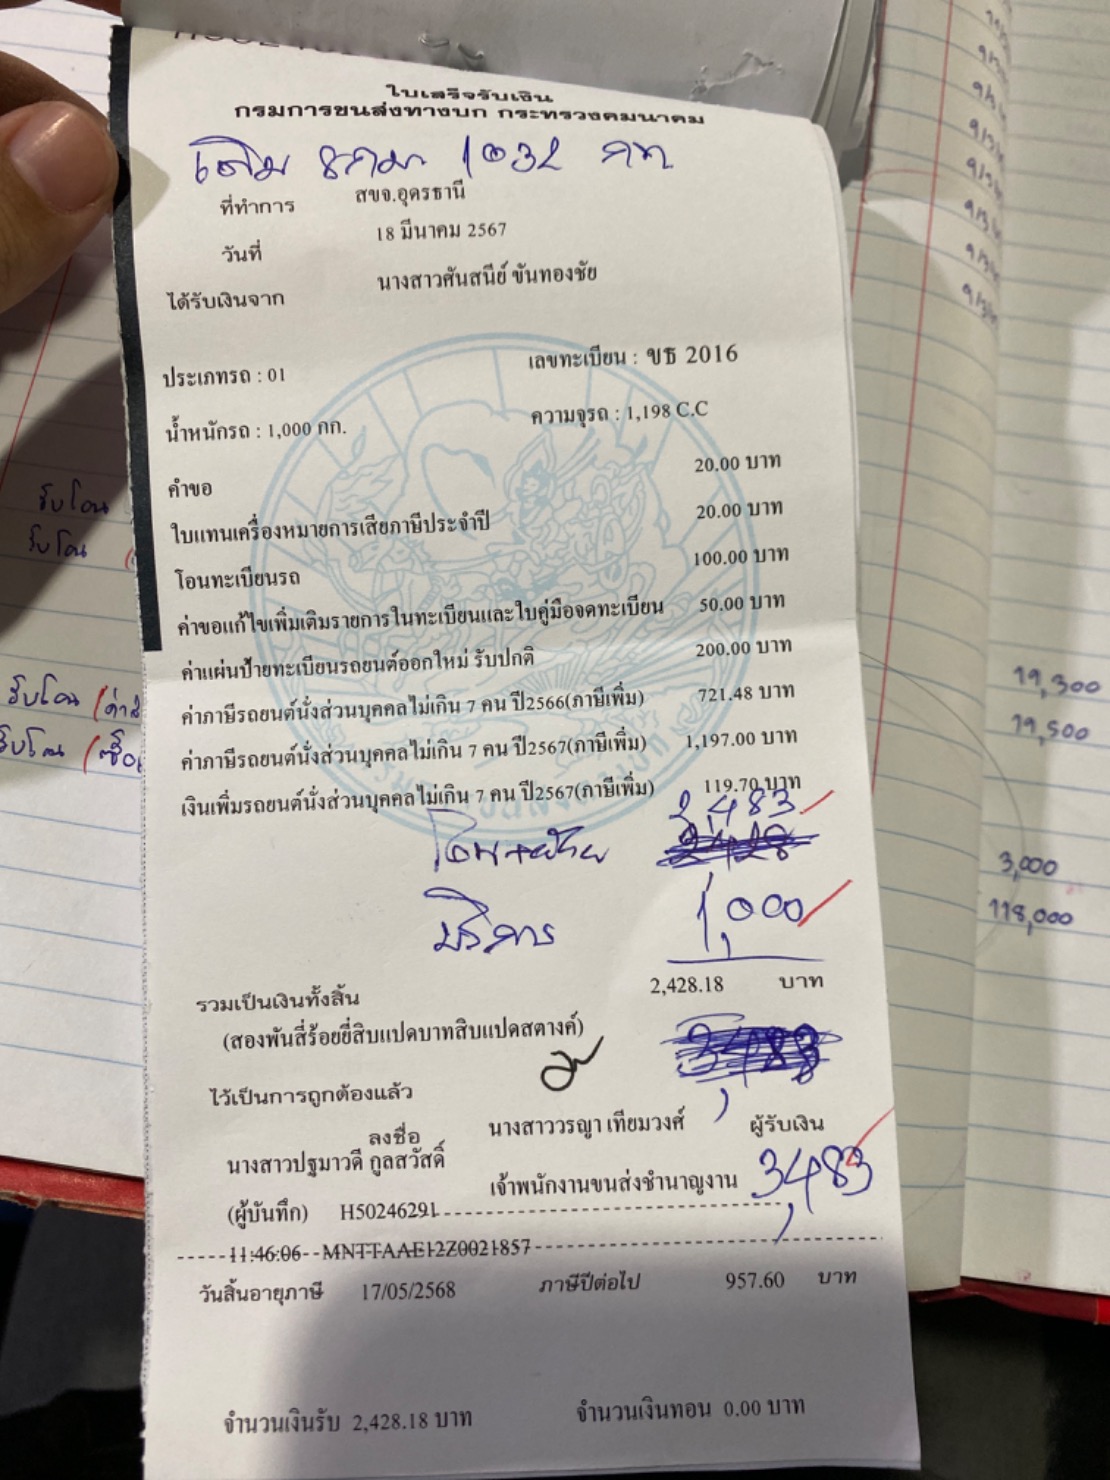 ใบเสร็จรับเงิน
กรมการขนส่งทางบก กระทรวงคมนาคม
เดิม 1032
ที่ทำการ สขจ.อุดรธานี
วันที่ 18 มีนาคม 2567
ได้รับเงินจาก นางสาวศันสนีย์ ขันทองชัย
ประเภทรถ : 01 เลขทะเบียน : ขธ 2016
น้ำหนักรถ : 1,000 กก. ความจุรถ : 1,198 C.C
คำขอ 20.00 บาท
ใบแทนเครื่องหมายการเสียภาษีประจำปี 20.00 บาท
โอนทะเบียนรถ 100.00 บาท
ค่าขอแก้ไขเพิ่มเติมรายการในทะเบียนและใบคู่มือจดทะเบียน 50.00 บาท
ค่าแผ่นป้ายทะเบียนรถยนต์ออกใหม่ รับปกติ 200.00 บาท
ค่าภาษีรถยนต์นั่งส่วนบุคคลไม่เกิน 7 คน ปี2566(ภาษีเพิ่ม) 721.48 บาท
ค่าภาษีรถยนต์นั่งส่วนบุคคลไม่เกิน 7 คน ปี2567(ภาษีเพิ่ม) 1,197.00 บาท
เงินเพิ่มรถยนต์นั่งส่วนบุคคลไม่เกิน 7 คน ปี2567(ภาษีเพิ่ม) 119.70 บาท
2,483
2,428
บริการ 1,000
รวมเป็นเงินทั้งสิ้น 2,428.18 บาท
(สองพันสี่ร้อยยี่สิบแปดบาทสิบแปดสตางค์)
3,483
ไว้เป็นการถูกต้องแล้ว
ลงชื่อ นางสาววรญา เทียมวงศ์ ผู้รับเงิน
นางสาวปฐมาวดี กูลสวัสดิ์ เจ้าพนักงานขนส่งชำนาญงาน 3,483
(ผู้บันทึก) H50246291
11:46:06 MNTTAAE12Z0021857
วันสิ้นอายุภาษี 17/05/2568 ภาษีปีต่อไป 957.60 บาท
จำนวนเงินรับ 2,428.18 บาท จำนวนเงินทอน 0.00 บาท
รับโอน
รับโอน
รับโอน
รับโอน
19,300
19,500
3,000
118,000